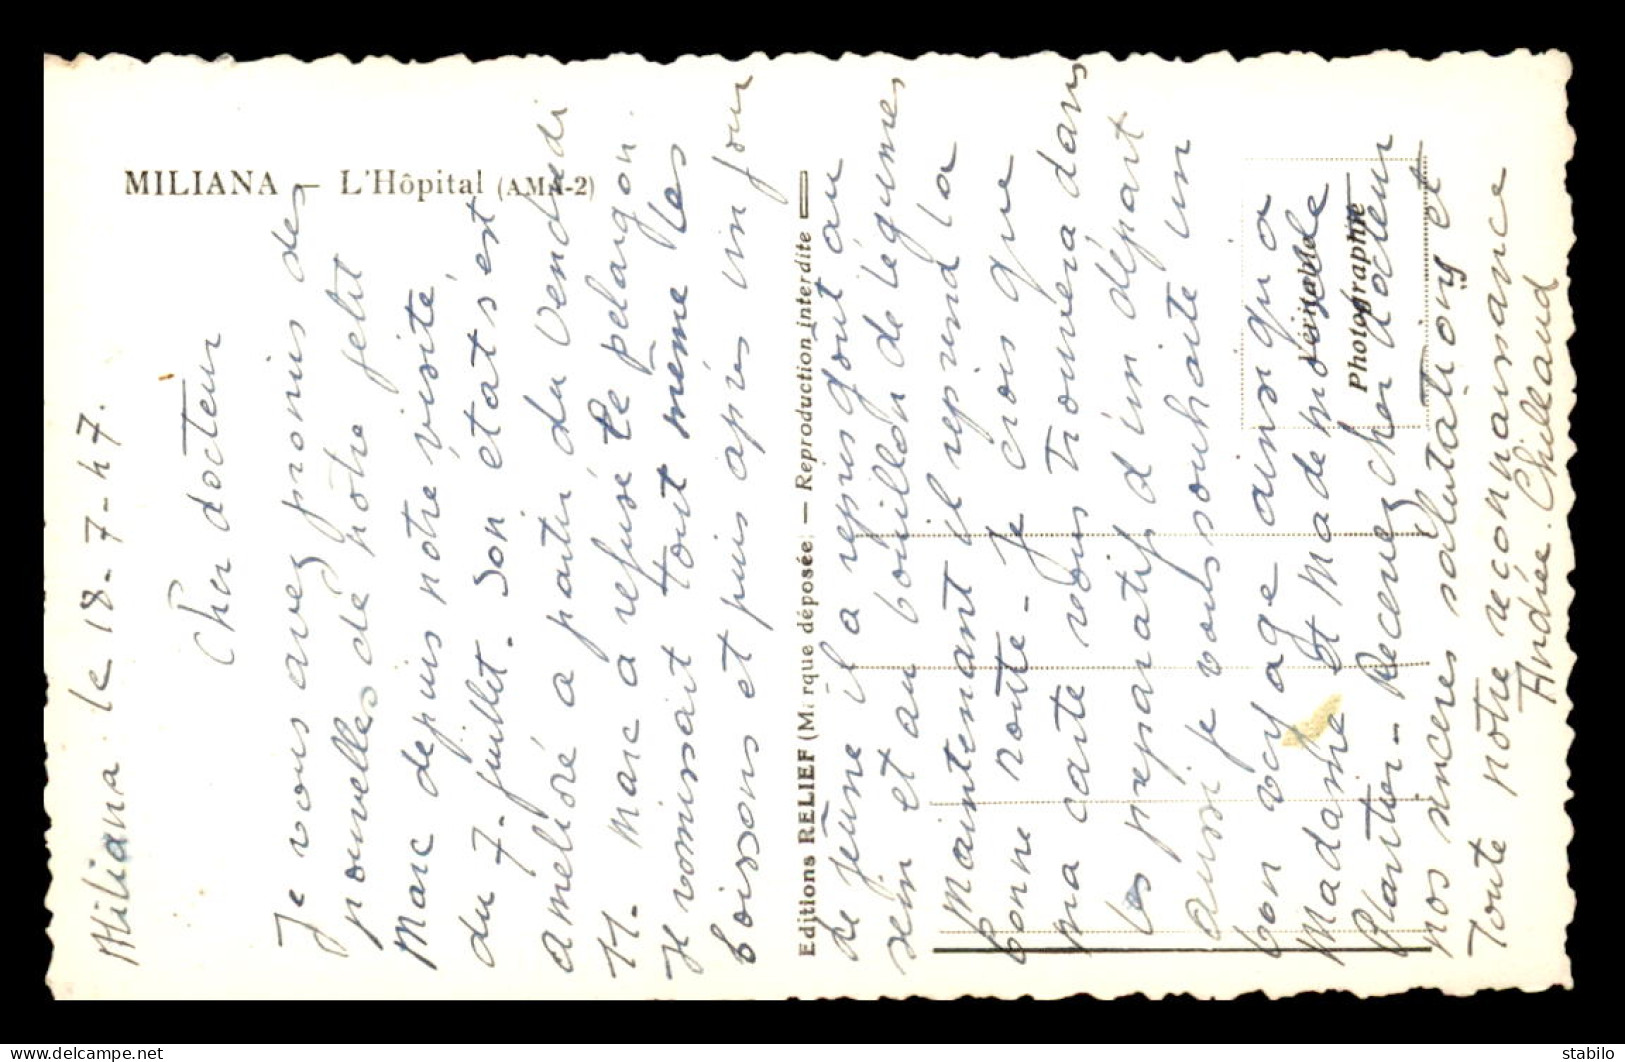 MILIANA — L'Hôpital (AMH-2)
Editions RELIEF (Marque déposée) — Reproduction interdite
Véritable
Photographie
Miliana le 18-7-47.
Cher docteur
Je vous avez promis des
nouvelles de notre petit
Marc depuis notre visite
du 7. juillet. Son état s'est
amélioré a partir du Vendredi
11. Marc a refusé le pelargon.
Il vomissait tout même les
boissons et puis après un jour
de jeûne il a repris goût au
sein et au bouillon de légumes
Maintenant il reprend la
bonne route - Je crois que
ma carte vous trouvera dans
les préparatifs d'un départ
aussi je vous souhaite un
bon voyage ainsi qu'a
Madame et Mademoiselle
Plartier - Recevez cher docteur
nos sincères salutations et
toute notre reconnaissance
Andrée Chilleaud
stabilo